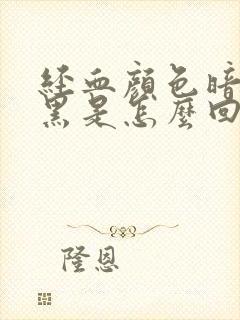 经血颜色暗
黑是怎麼回
隆恩